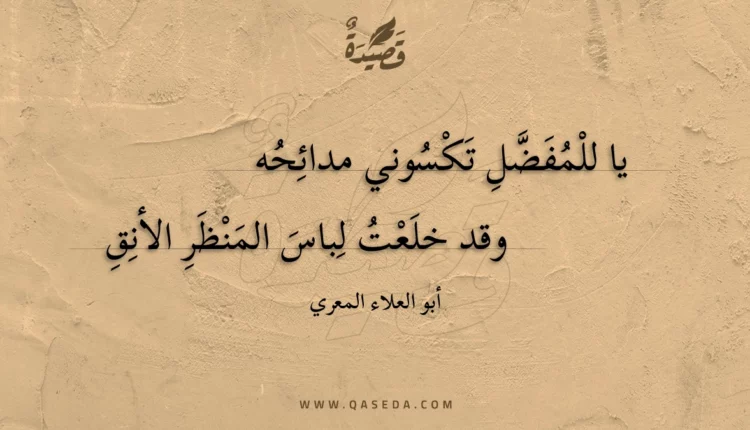 قَصِيدَةٌ
يا للْمُفَضَّلِ تَكْسُوني مدائِحُه
وقد خلَعْتُ لِباسَ المَنْظَرِ الأنِقِ
أبو العلاء المعري
WWW.QASEDA.COM